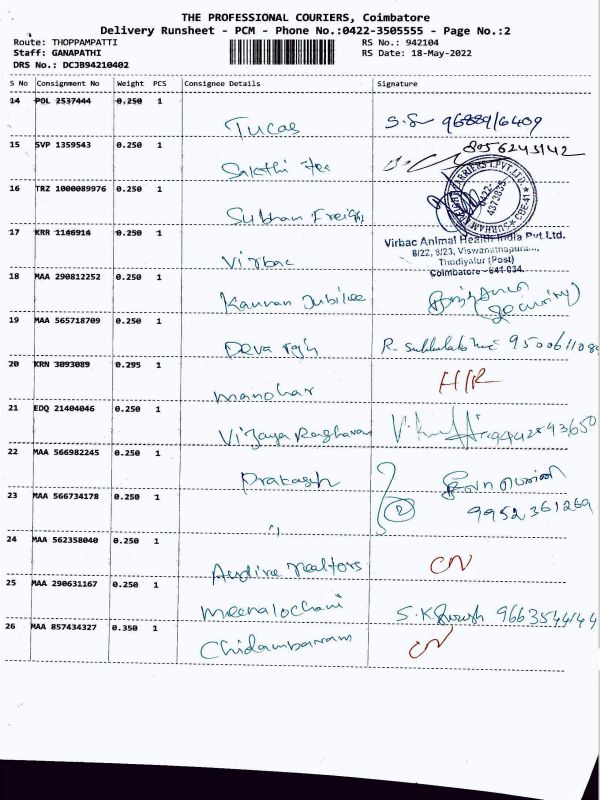 THE PROFESSIONAL COURIERS, Coimbatore
Delivery Runsheet - PCM - Phone No.:0422-3505555 - Page No.:2
Route: THOPPAMPATTI RS No.: 942104
Staff: GANAPATHI RS Date: 18-May-2022
DRS No.: DCJB94210402
S No Consignment No Weight PCS Consignee Details Signature
14 POL 2537444 0.250 1
Tucas
15 SVP 1359543 0.250 1 8056245142
Sakthi Tea
16 TRZ 1000089976 0.250 1
Subhan Freight
17 KRR 1166914 0.250 1
Virbac
Virbac Animal Health India Pvt.Ltd.
8/22, 8/23, Viswanathapuram,
Thudiyalur (Post)
Coimbatore - 641 034.
18 MAA 290812252 0.250 1
Kannan Jubilee (Security)
19 MAA 565718709 0.250 1
Deva
20 KRN 3093089 0.295 1
Manohar H/R
21 EDQ 21404046 0.250 1
Vijaya Raghavan
22 MAA 566982245 0.250 1
Prakash
23 MAA 566734178 0.250 1 2
" 9952361269
24 MAA 562358040 0.250 1
realtors CN
25 MAA 290631167 0.250 1
Meenalochani 9663544144
26 MAA 857434327 0.350 1
Chidambaram CN